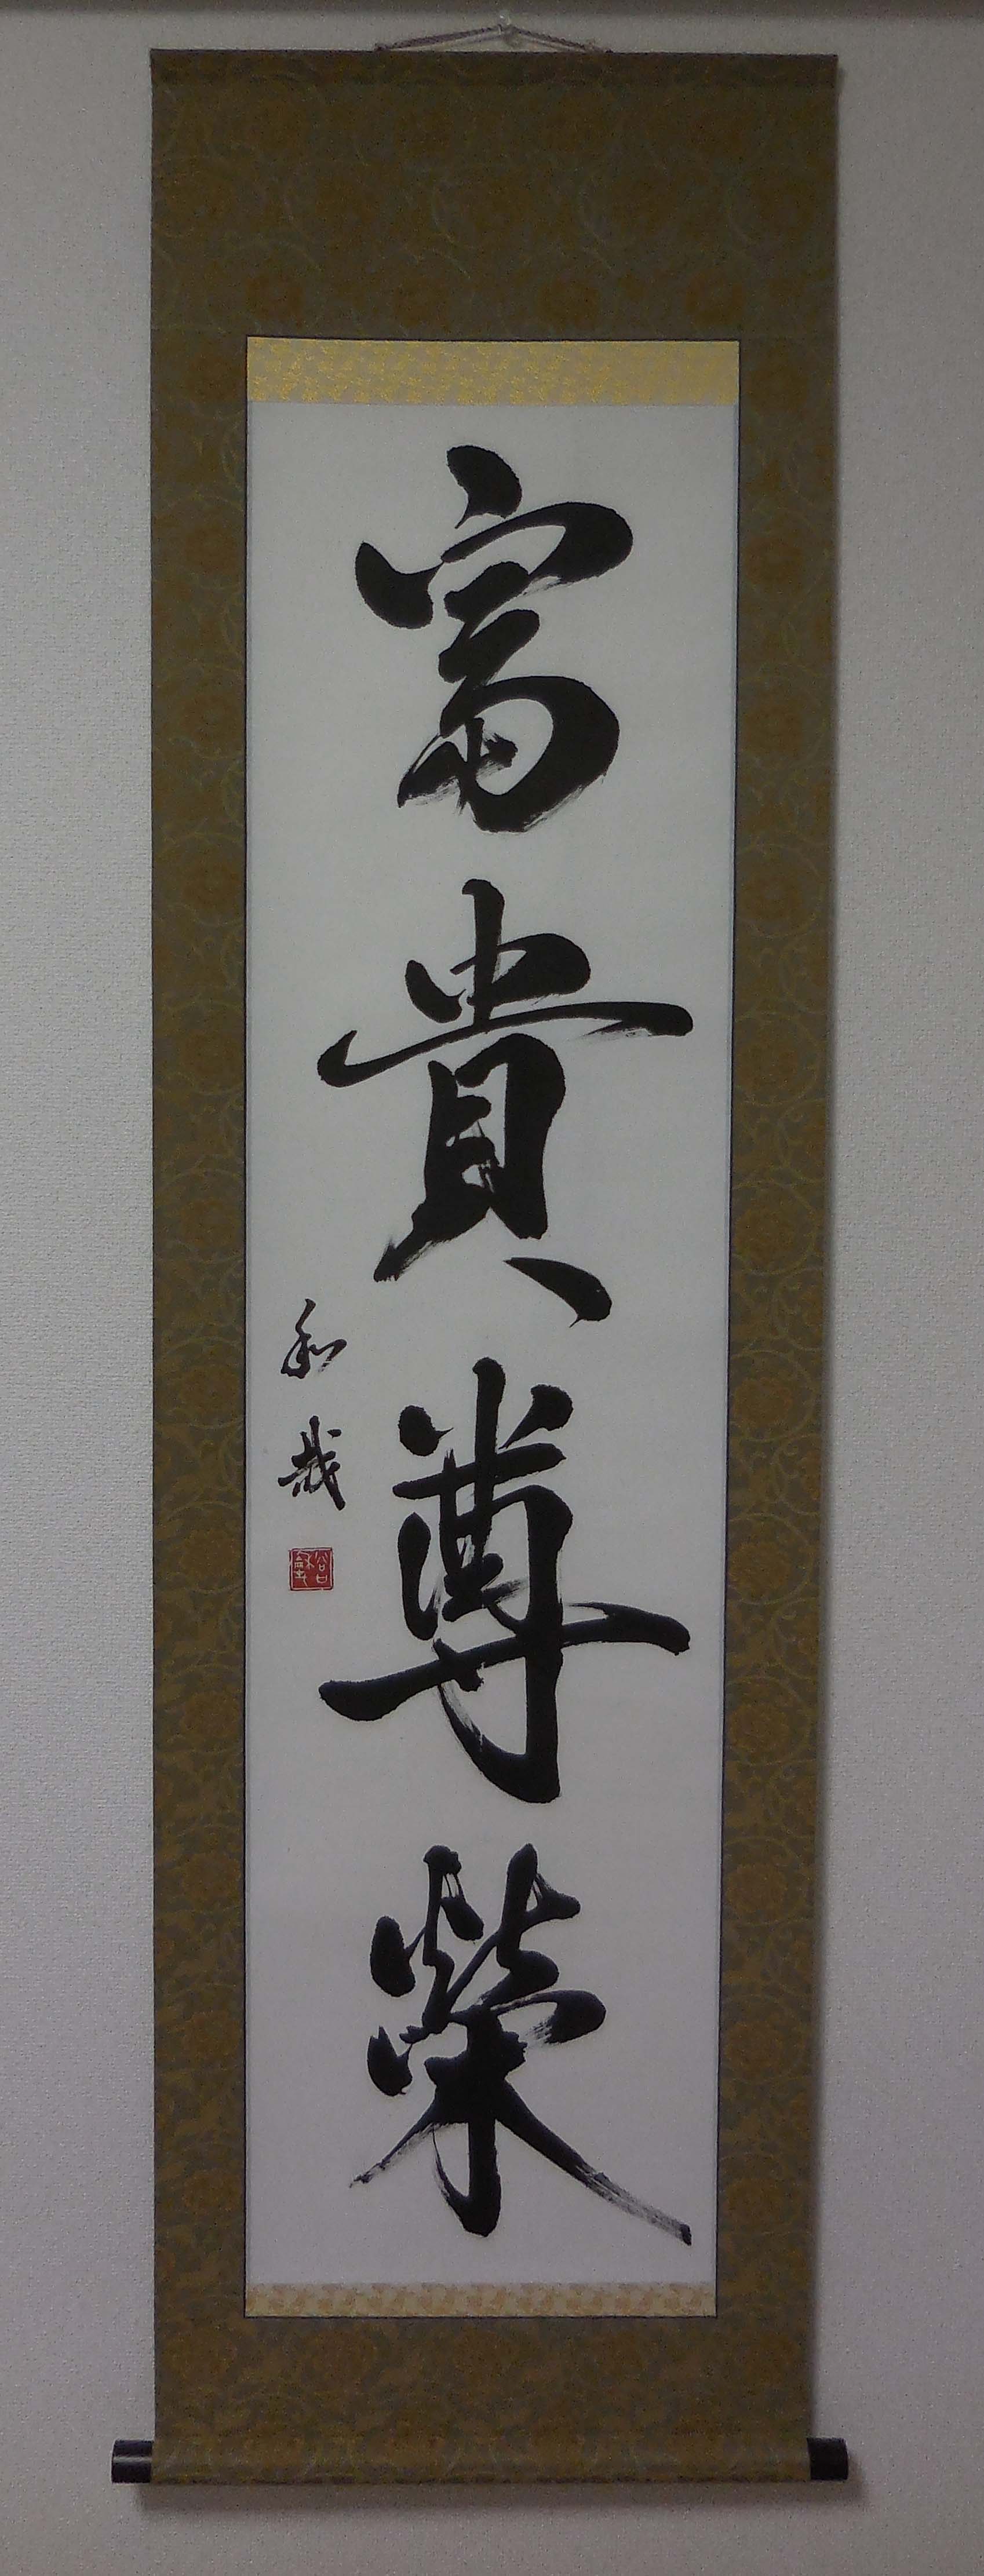 富貴尊榮
和哉